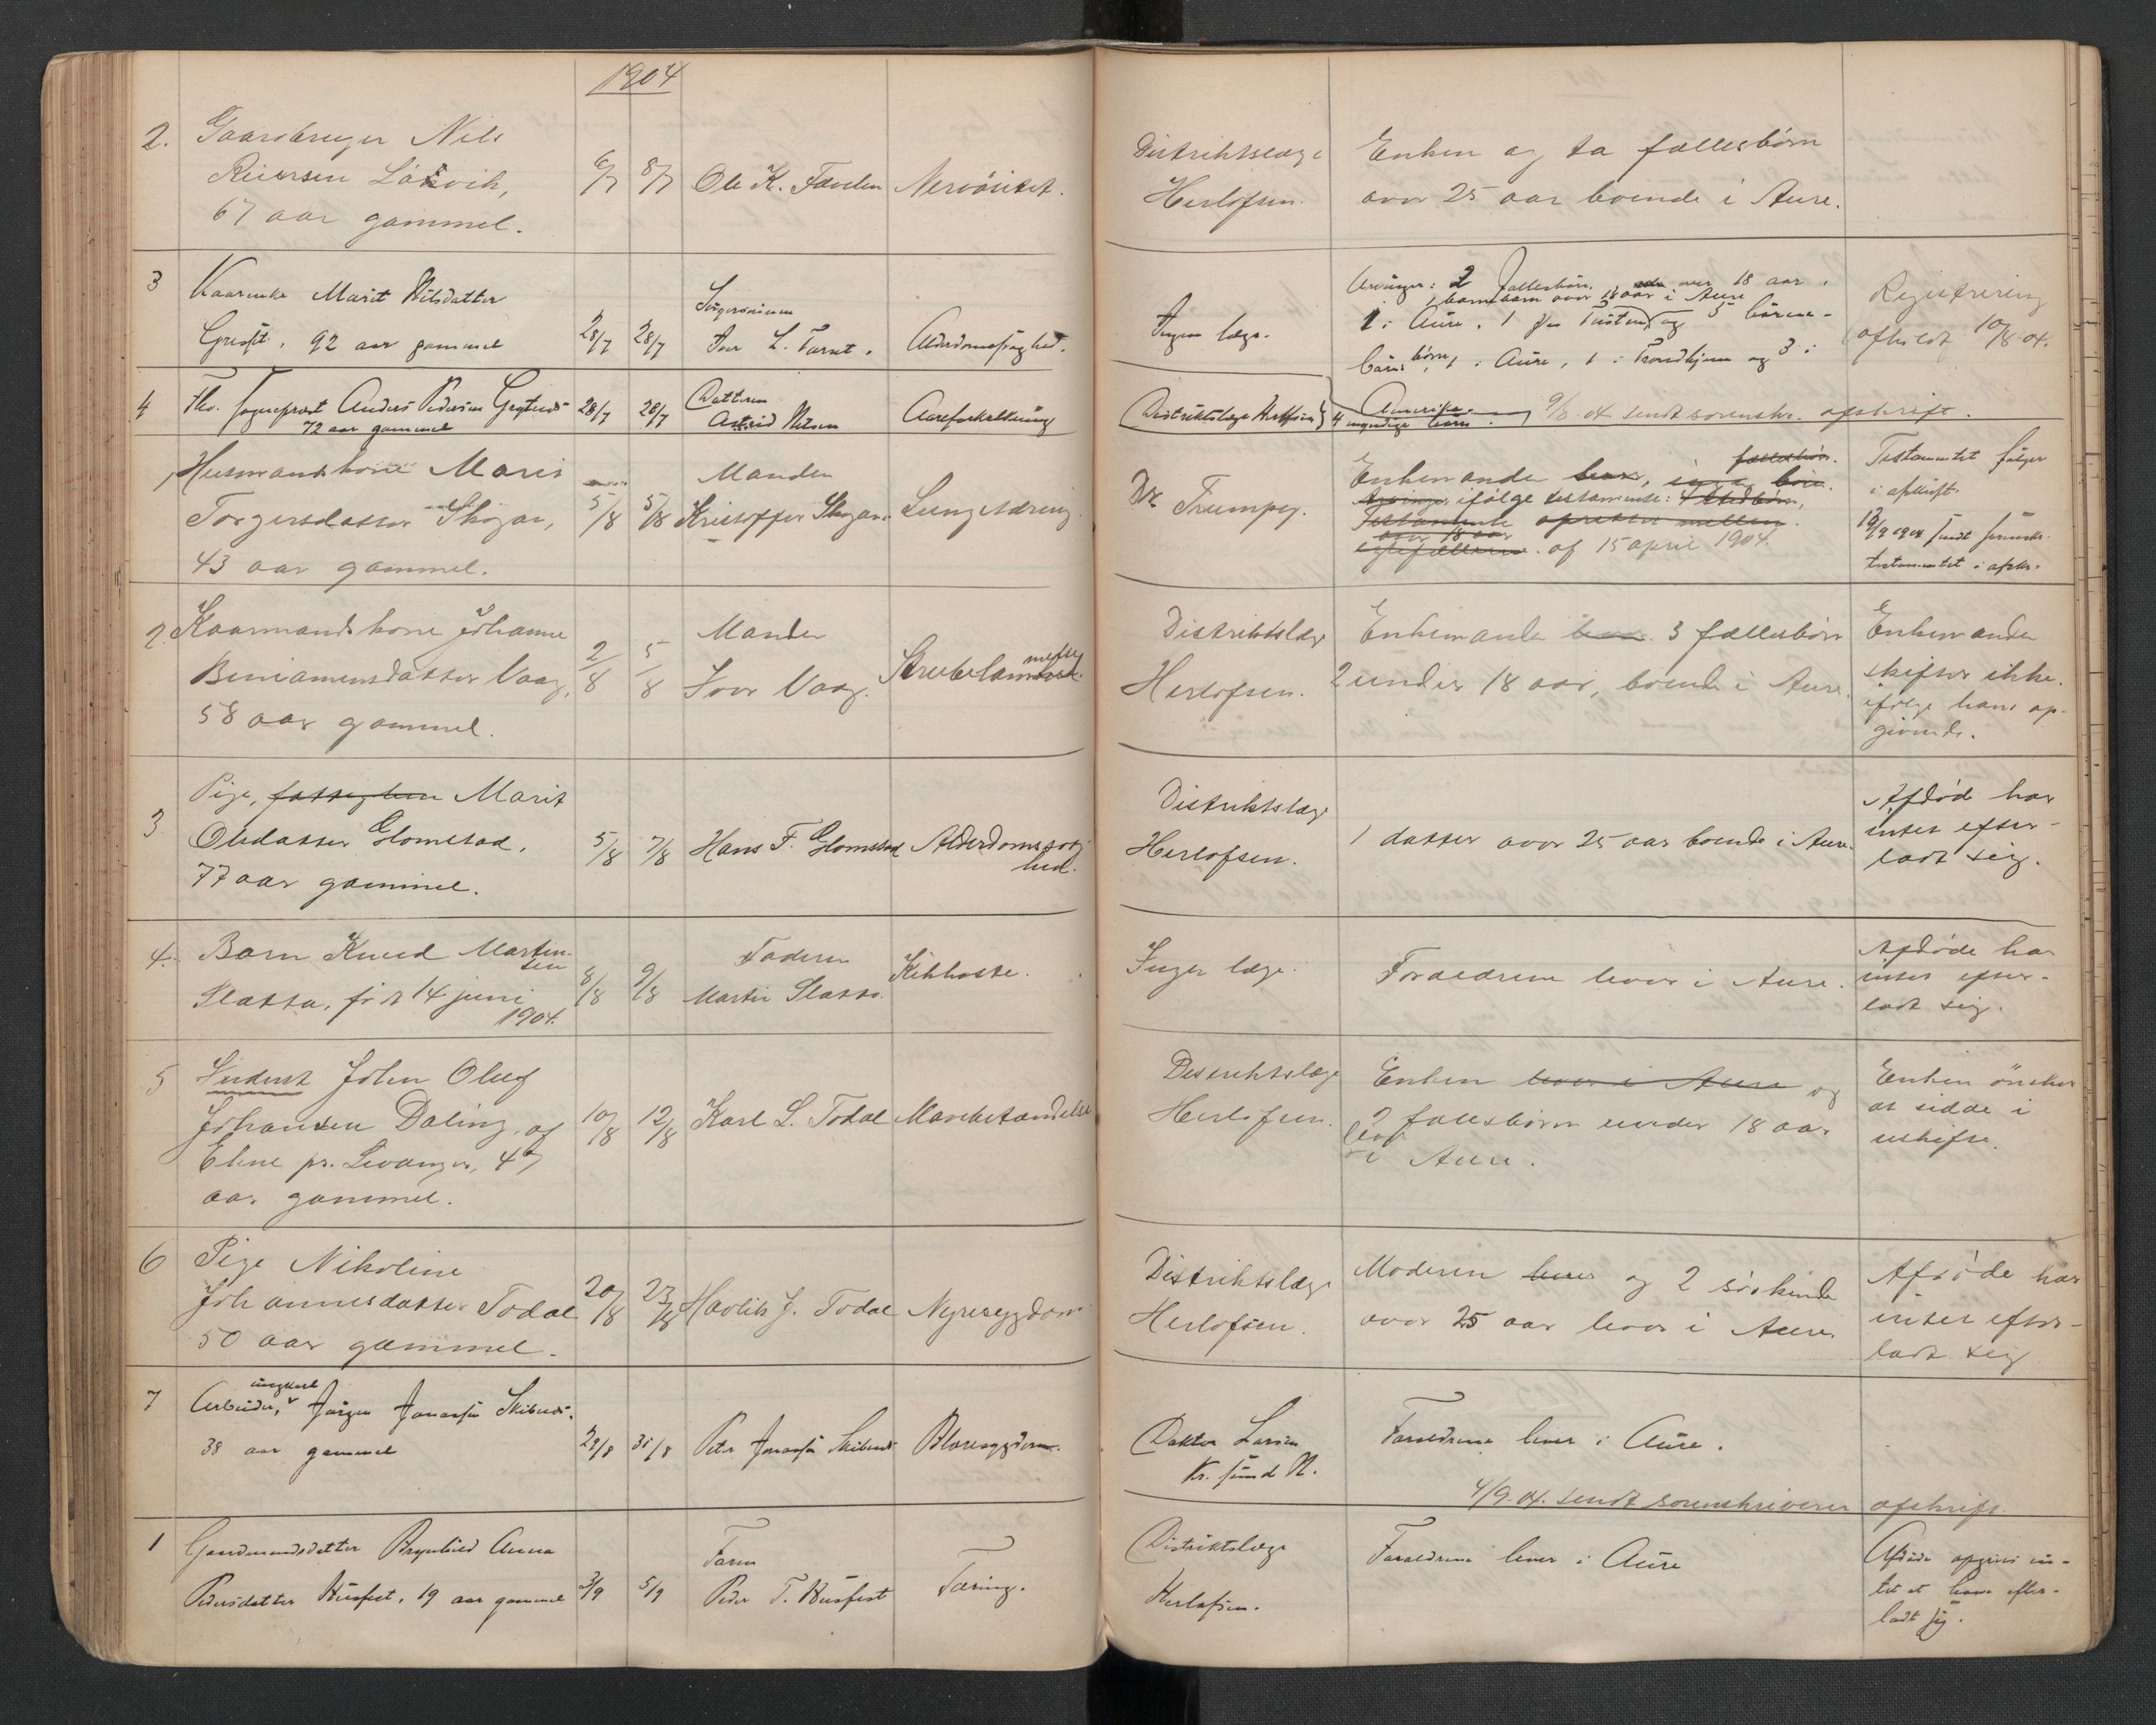 1904
2. Gaardbruger Nils
Reiersen Låsvik,
67 aar gammel.
6/7 8/7 Ole K. Tævlen Nervøsitet.
Distriktslæge
Herlofsen.
Enken og to fællesbörn
over 25 aar boende i Aure.
3 Kaarenke Marit Nilsdatter
92 aar gammel
28/7 28/7
Ivar L. Alderdomssvaghed.
Ingen læge.
Arvinger: 2 Fællesbörn, over 18 aar,
1 barnebarn over 18 aar i Aure
1 i Aure, 1 paa Tusteren og 5 börne-
börns börn, 1 i Aure, 1 i Trondhjem og 3 i
Amerika.
Registrering
afholdt 10/8 04.
4 Fhv. sogneprest Anders Pedersen
72 aar gammel
28/7 28/7
Datteren
Astrid Nilsen
Aareforkalkning
Distriktslæge Herlofsen
4 myndige börn.
9/8 04 sendt sorenskr. afskrift.
1 Husmandskone Marit
Torgersdatter Skogan,
43 aar gammel.
5/8 5/8
Manden
Kristoffer Skogan.
Lungetæring
Dr Trumpy.
Enkemanden
fællesbörn.
ifölge testamente: 4 stedbörn,
Testamente oprettet mellem
over 18 aar
egtefællerne. af 15 april 1904.
Testamentet fölger
i afskrift.
12/9 1904 sendt sorenskr.
testamentet i afskr.
2. Kaarmandskone Johanne
Beniamensdatter Vaag,
58 aar gammel.
2/8 5/8
Manden
Iver Vaag.
Distriktslæge
Herlofsen.
Enkemanden lever. 3 fællesbörn
2 under 18 aar, boende i Aure.
Enkemanden
skifter ikke.
ifölge hans op-
givende.
3 Pige, fattiglem Marit
Olsdatter Glomstad,
77 aar gammel.
5/8 7/8 Hans F. Glomstad Alderdomssvag
hed.
Distriktslæge
Herlofsen.
1 datter over 25 aar boende i Aure.
Afdød har
intet efter-
ladt sig.
4. Barn Knud Martin-
sen
Slatta, född 14 juni
1904.
8/8 9/8
Faderen
Martin Slatta.
Kikhoste.
Ingen læge.
Forældrene lever i Aure.
Afdøde har
intet efter-
ladt sig.
5 Inderst John Oluf
Johansen Daling, af
Ekne pr. Levanger, 47
aar gammel.
10/8 12/8 Karl L. Todal Mavebetændelse
Distriktslæge
Herlofsen.
Enken lever i Aure og
2 fællesbörn under 18 aar
lever
i Aure.
Enken önsker
at sidde i
uskifte.
6 Pige Nikoline
Johannesdatter Todal
50 aar gammel.
20/8 23/8 Havlik J. Todal Nyresygdom
Distriktslæge
Herlofsen.
Moderen lever og 2 söskende
over 25 aar lever i Aure.
Afdöde har
intet efter-
ladt sig
7 Arbeider, ungkarl Jørgen Jonassen Skibnes.
38 aar gammel
29/8 31/8 Peter Jonassen Skibnes Blæresygdom.
Doktor Larsen
Kr. sund N.
Forældrene lever i Aure.
4/9. 04. sendt sorenskriveren afskrift.
1 Gaardmandsdatter Brynhild Anna
Pedersdatter Husfest, 19 aar gammel
3/9 5/9
Faren
Peder T. Husfest
Tæring.
Distriktslæge
Herlofsen.
Forældrene lever i Aure
Afdøde opgives in-
tet at have efter-
ladt sig.